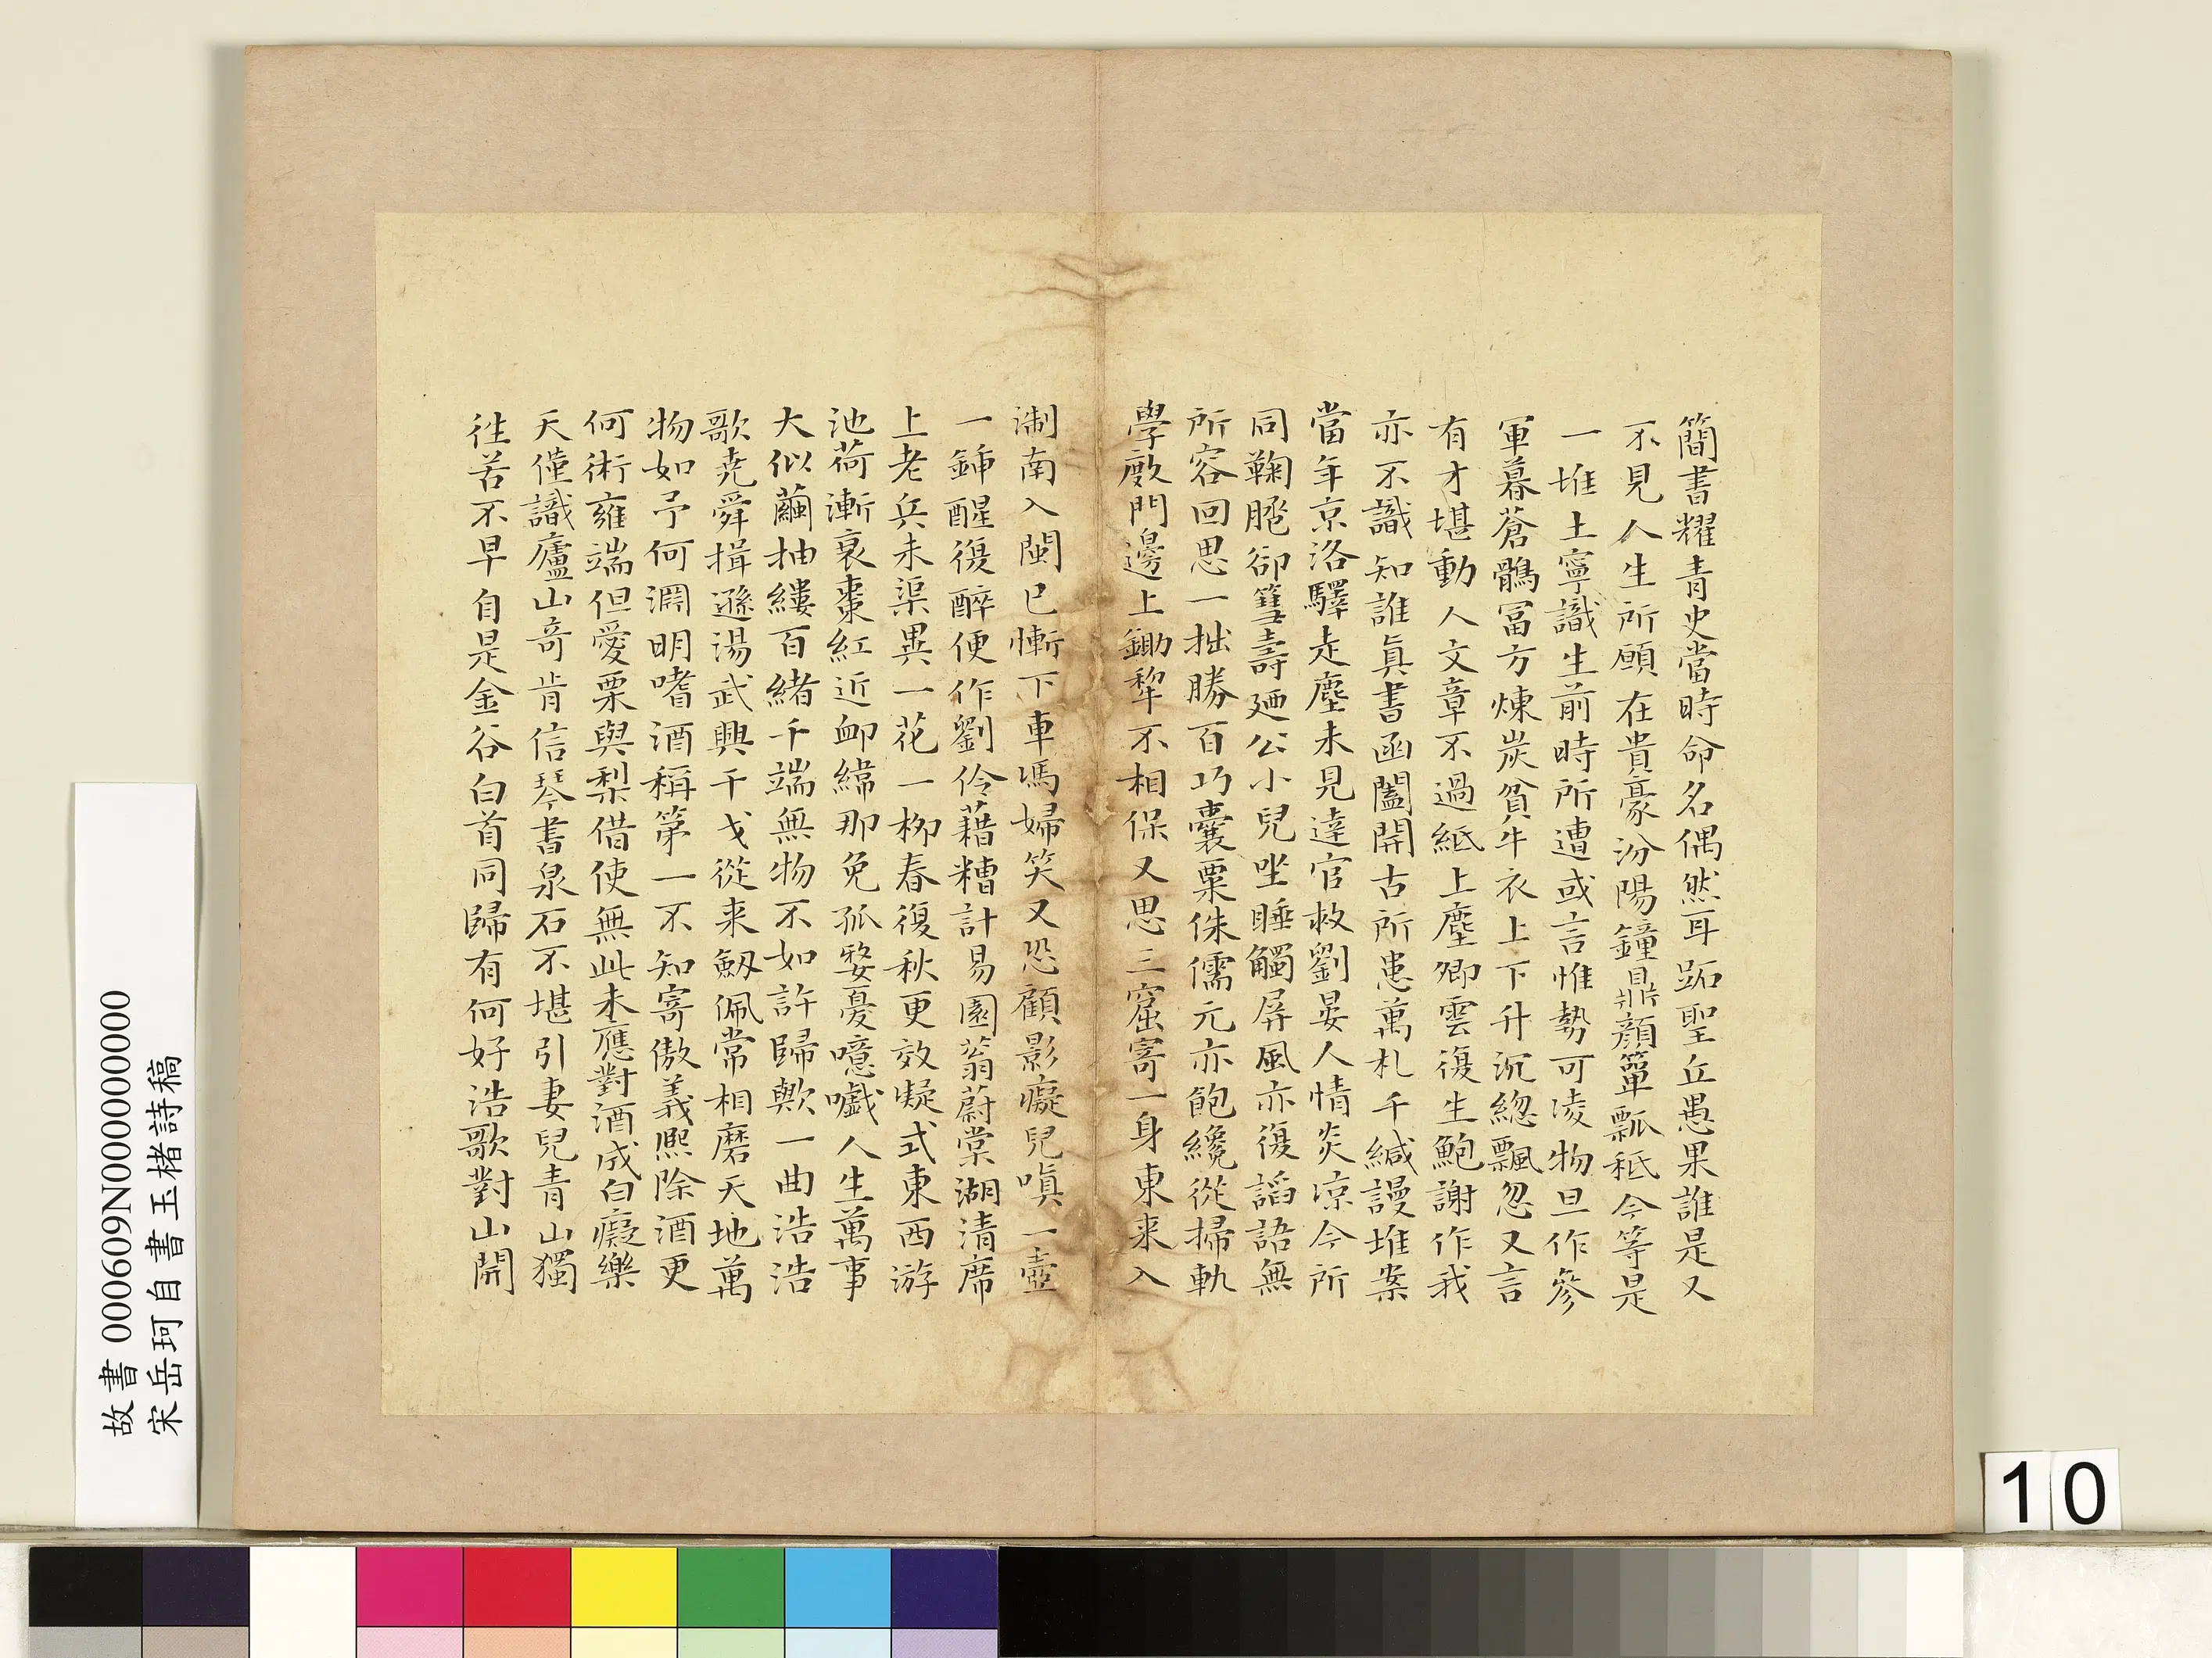 簡書耀青史當時命名偶然耳跖聖丘愚果誰是又
不見人生所願在貴豪汾陽鐘鼎顏簞瓢秖今等是
一堆土寧識生前時所遭或言惟勢可凌物旦作參
軍暮蒼鶻冨方煉炭貧牛衣上下升沉緫飄忽又言
有才堪動人文章不過紙上塵卿雲復生鮑謝作我
亦不識知誰真書函闔開古所患萬札千緘謾堆案
當年京洛驛走塵未見達官救劉晏人情炎凉今所
同鞠跽卻篲壽廼公小兒坐睡觸屏風亦復謟語無
所容回思一拙勝百巧囊粟侏儒元亦飽纔從掃軌
學敿門邊上鋤犂不相保又思三窟寄一身東来入
淛南入閩已慚下車馮婦笑又恐顧影癡兒嗔一壺
一鍤醒復醉便作劉伶藉糟計易園翁蔚棠湖清席
上老兵未渠異一花一柳春復秋更效凝式東西游
池荷漸衰棗紅近衈緯那免孤嫠憂噫嚱人生萬事
大似繭抽縷百緒千端無物不如許歸歟一曲浩浩
歌堯舜揖遜湯武興干戈從来劒佩常相磨天地萬
物如予何淵明嗜酒稱第一不知寄傲義熈除酒更
何術雍端但愛栗與梨借使無此未應對酒成白癡樂
天僅識廬山奇肯信琴書泉石不堪引妻兒青山獨
徃苦不早自是金谷白首同歸有何好浩歌對山開
故書 000609N000000000
宋岳珂自書玉楮詩稿
10